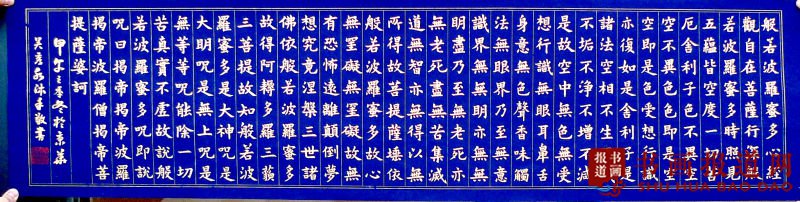 般若波羅蜜多心經
觀自在菩薩行深般
若波羅蜜多時照見
五蘊皆空度一切苦
厄舍利子色不異空
空不異色色即是空
空即是色受想行識
亦復如是舍利子是
諸法空相不生不滅
不垢不淨不增不減
是故空中無色無受
想行識無眼耳鼻舌
身意無色聲香味觸
法無眼界乃至無意
識界無無明亦無無
明盡乃至無老死亦
無老死盡無苦集滅
道無智亦無得以無
所得故菩提薩埵依
般若波羅蜜多故心
無罣礙無罣礙故無
有恐怖遠離顛倒夢
想究竟涅槃三世諸
佛依般若波羅蜜多
故得阿耨多羅三藐
三菩提故知般若波
羅蜜多是大神咒是
大明咒是無上咒是
無等等咒能除一切
苦真實不虛故說般
若波羅蜜多咒即說
咒曰揭帝揭帝波羅
揭帝波羅僧揭帝菩
提薩婆訶
甲午之季冬於京華
沐手敬書
书画报道
书画报道
SHU HUA BAO DAO